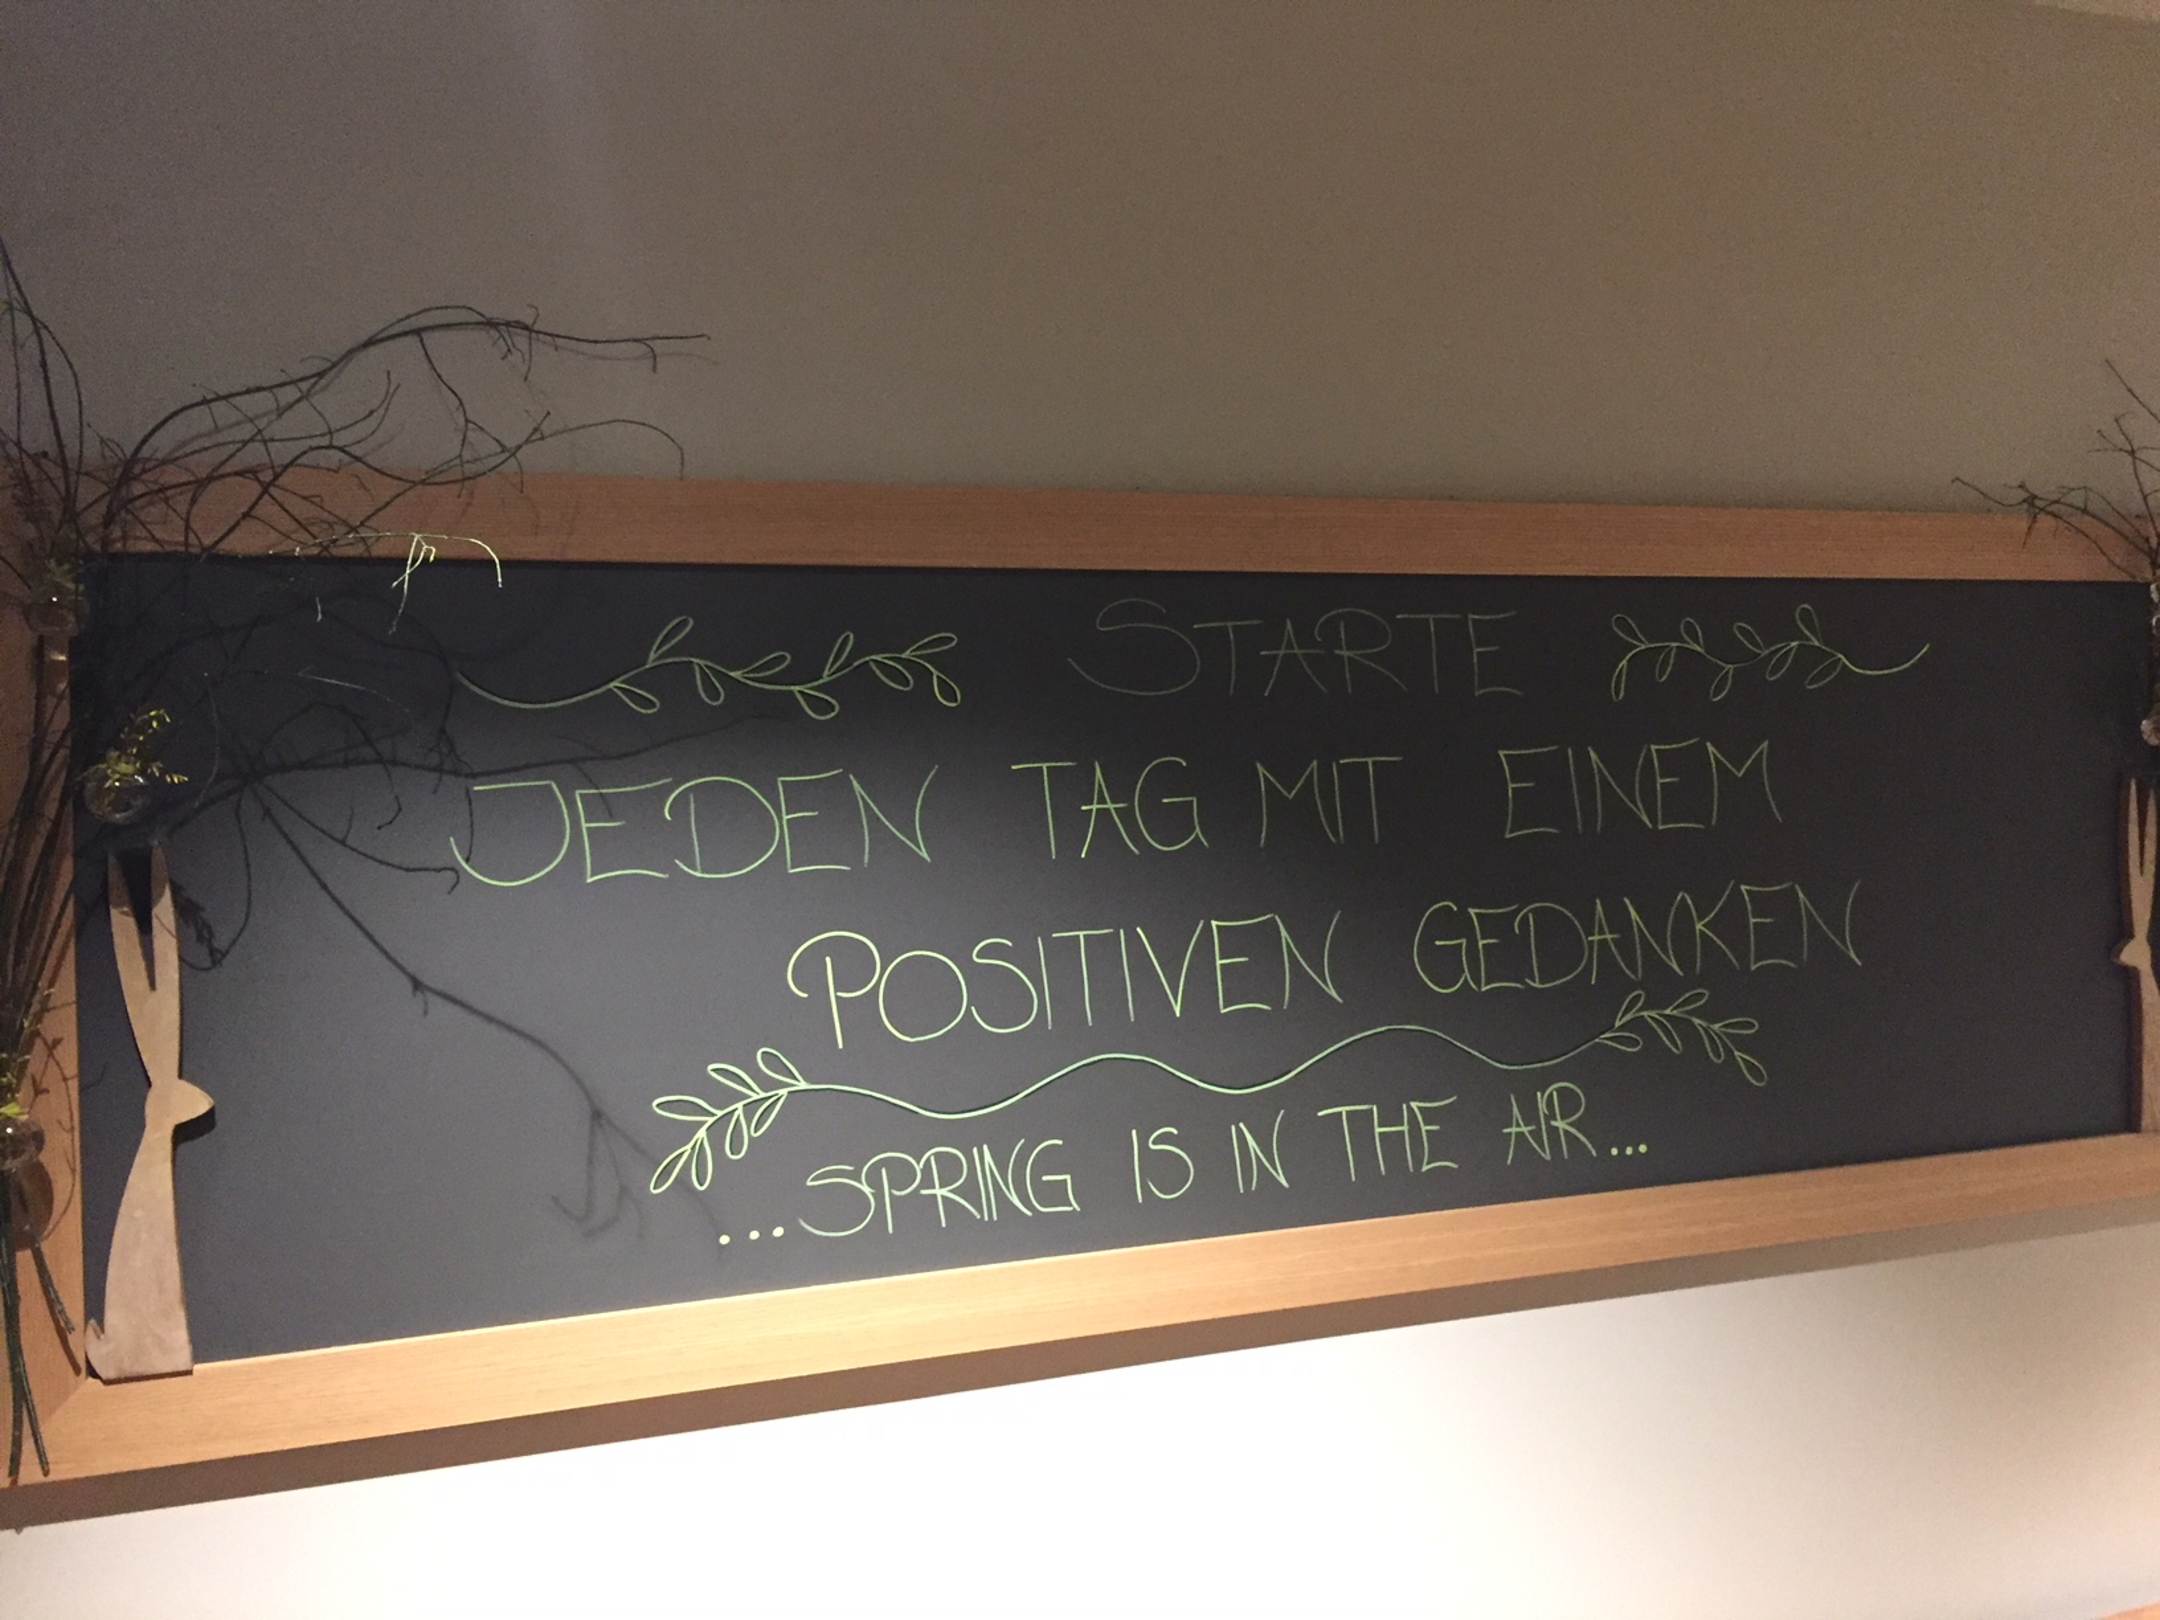 STARTE
JEDEN TAG MIT EINEM
POSITIVEN GEDANKEN
...SPRING IS IN THE AIR...